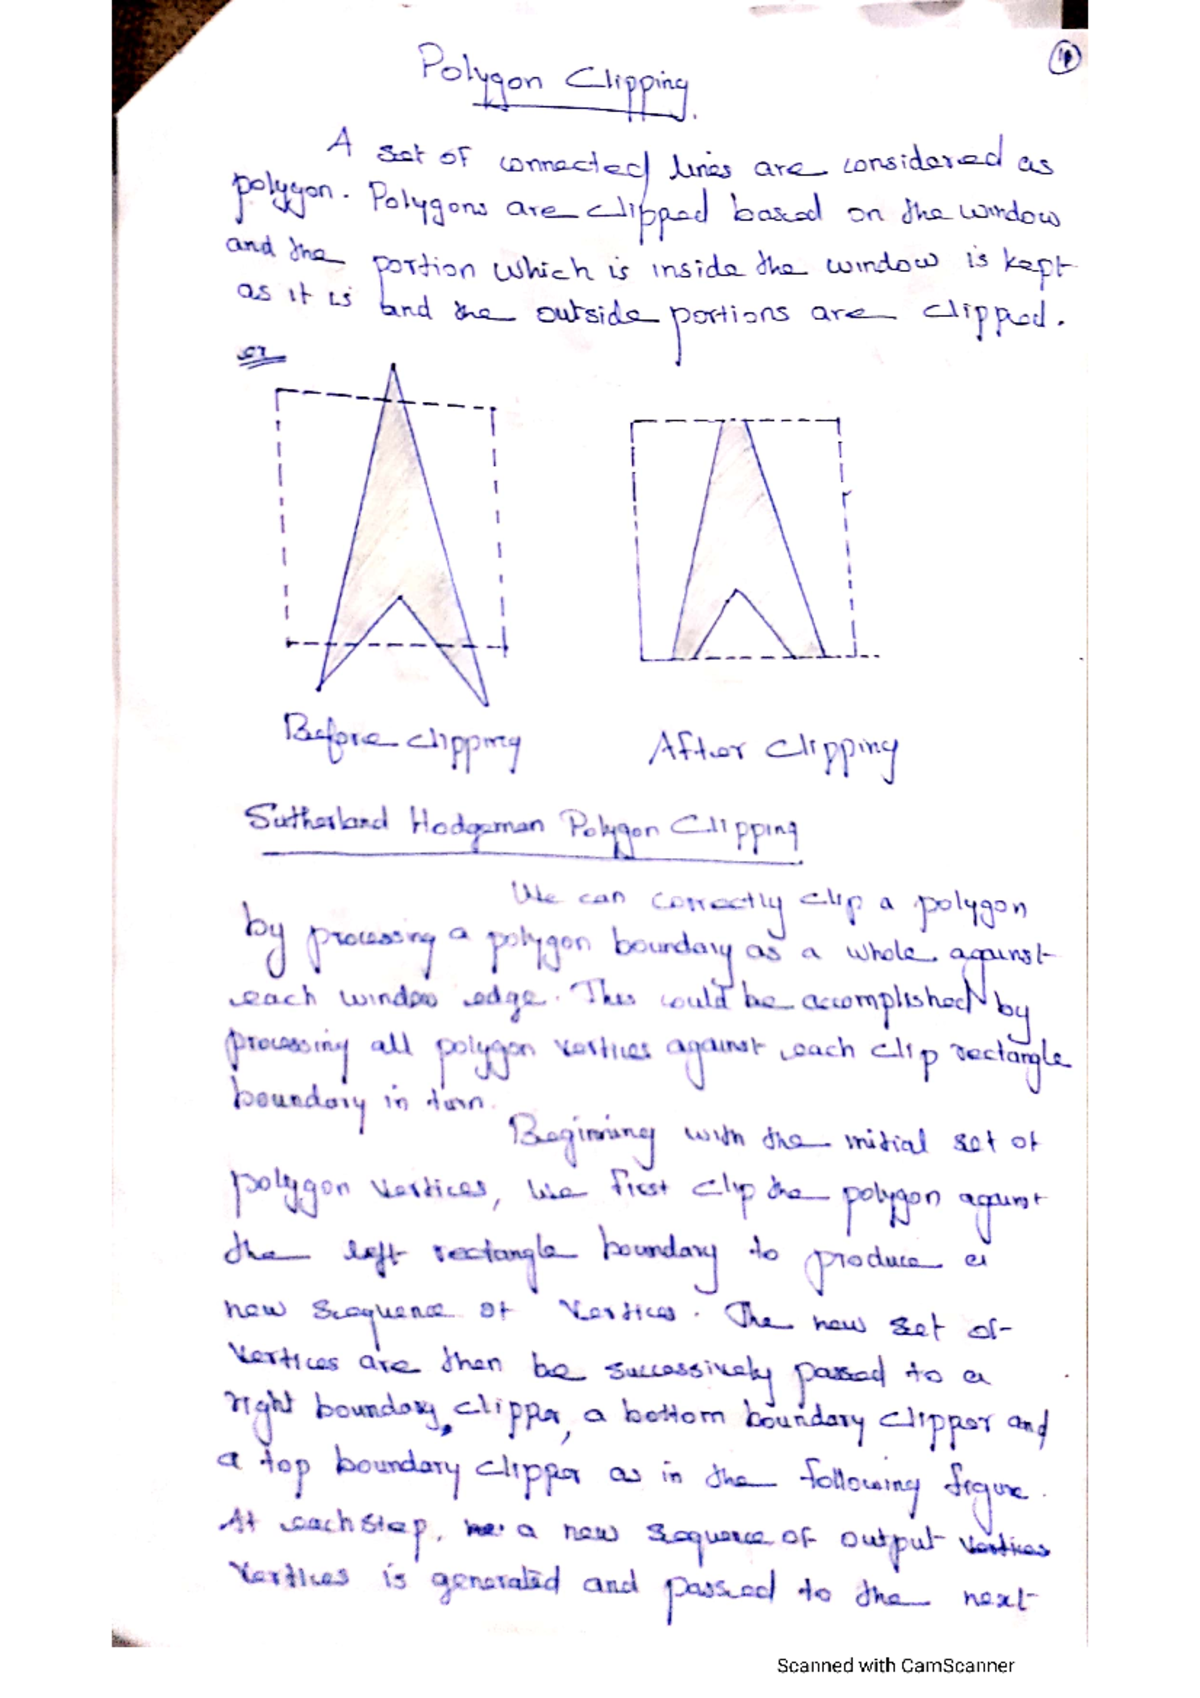 Polygon Clipping.
A set of connected lines are considered as
polygon. Polygons are clipped based on the window
and the portion which is inside the window is kept
as it is and the outside portions are clipped.
Before clipping
After clipping
Sutherland Hodgeman Polygon Clipping
We can correctly clip a polygon
by processing a polygon boundary as a whole against
each window edge. This could be accomplished by
processing all polygon vertices against each clip rectangle
boundary in turn.
Beginning with the initial set of
polygon vertices, we first clip the polygon against
the left rectangle boundary to produce a
new sequence of vertices. The new set of
vertices are then be successively passed to a
right boundary clipper, a bottom boundary clipper and
a top boundary clipper as in the following figure.
At each step, a new sequence of output vertices
vertices is generated and passed to the next
Scanned with CamScanner